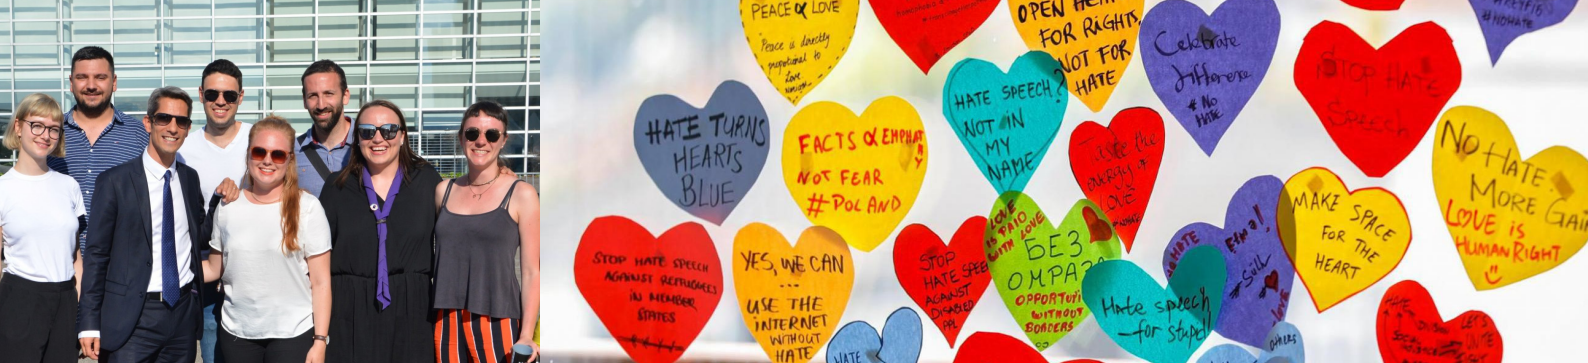 PEACE & LOVE
Peace is directly
proportional to
Love
OPEN
FOR RIGHTS,
NOT FOR
HATE
Celebrate
difference
# No
HATE
#NOHATE
STOP HATE
Speech
HATE TURNS
HEARTS
BLUE
FACTS & EMPHAT
NOT FEAR
#POLAND
HATE SPEECH?
NOT IN
MY
NAME
Taste the
energy of
LOVE
NO HATE.
MORE GAI
LOVE is
HUMAN RIGHT
STOP HATE SPEECH
AGAINST REFUGEES
IN MEMBER
STATES
YES, WE CAN
...
USE THE
INTERNET
WITHOUT
HATE
STOP
HATE SPEE
AGAINST
DISABLED
PPL
LOVE
IS PAID
WITH LOVE
БЕЗ
ОМРАЗА
OPPORTUNI
WITHOUT
BORDERS
Hate speech
for stupid
HATE
love
MAKE SPACE
FOR THE
HEART
HATE
others
LET'S